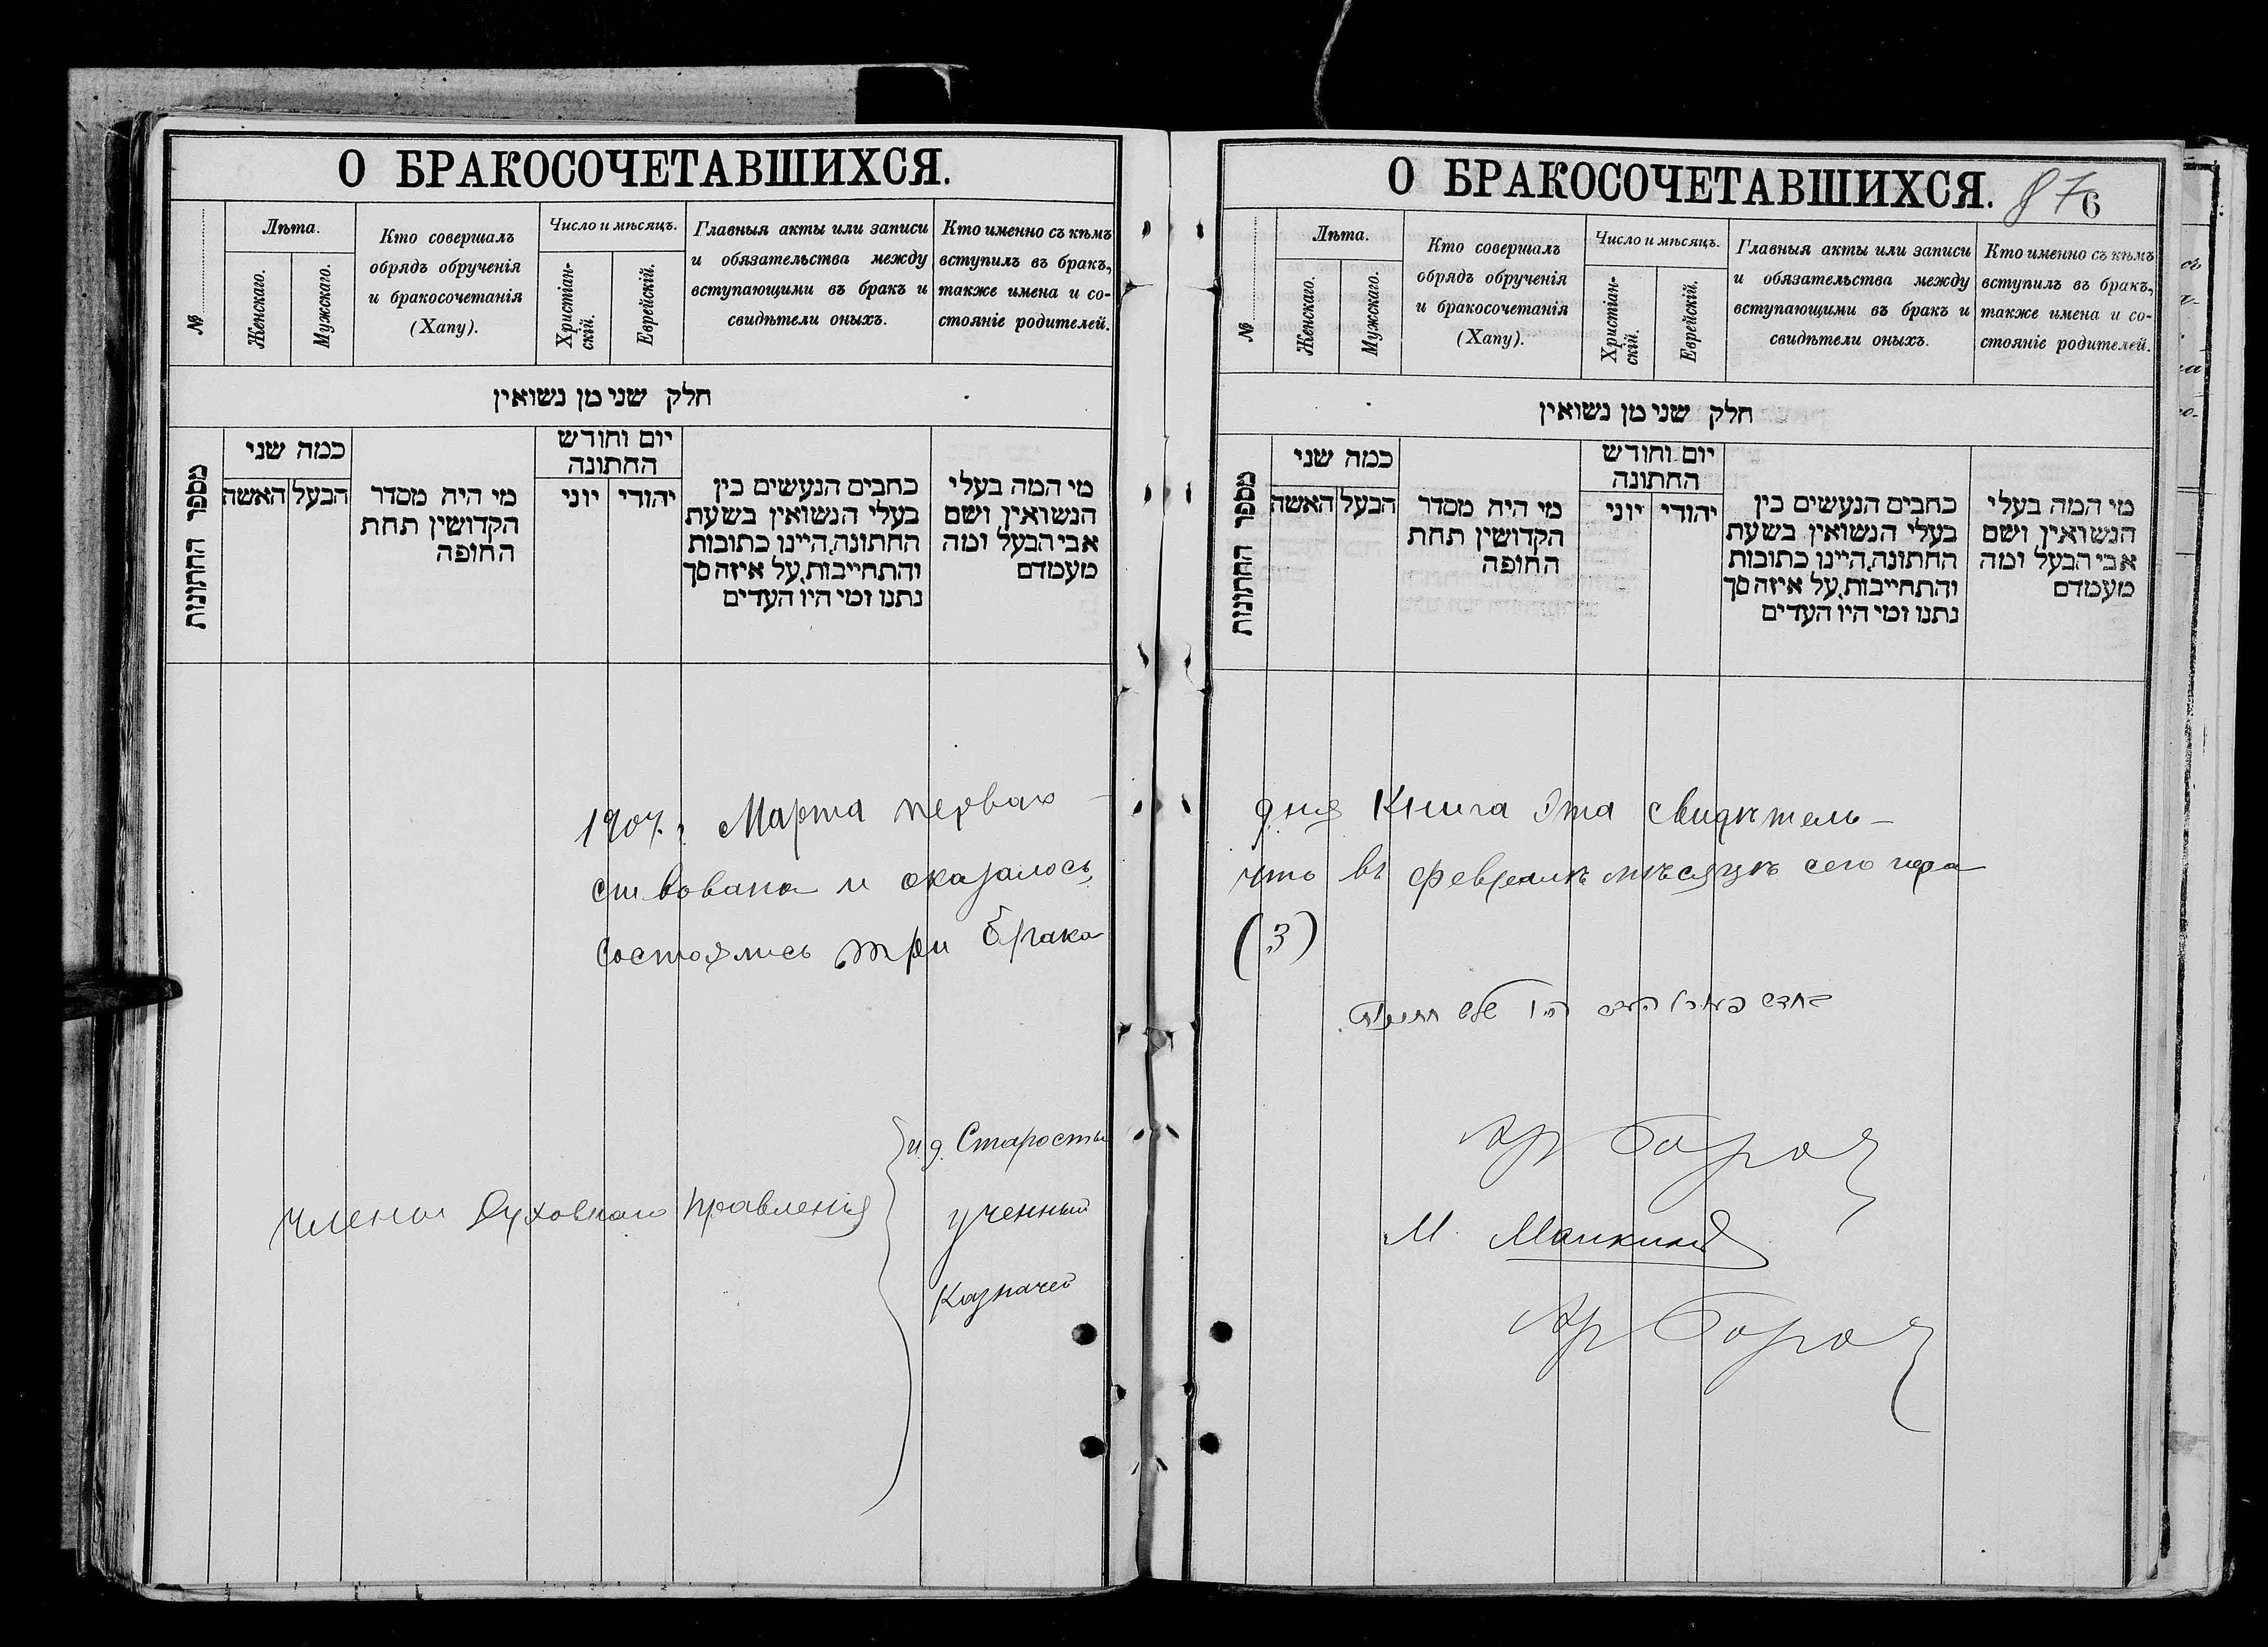 О БРАКОСОЧЕТАВШИХСЯ.
№
Лѣта.
Женскаго.
Мужскаго.
Кто совершалъ
обрядъ обрученія
и бракосочетанія
(Хапу).
Число и мѣсяцъ.
Христіан-
скій.
Еврейскій.
Главныя акты или записи
и обязательства между
вступающими въ бракъ и
свидѣтели оныхъ.
Кто именно съ кѣмъ
вступилъ въ бракъ,
также имена и со-
стояніе родителей.
חלק שני מן נשואין
מספר החתונות
כמה שני
הבעל
האשה
מי היה מסדר
הקדושין תחת
החופה
יום וחודש
החתונה
יוני
יהודי
כחבים הנעשים בין
בעלי הנשואין בשעת
החתונה, היינו כתובות
והתחייבות, על איזה סך
נתנו ומי היו העדים
מי המה בעלי
הנשואין ושם
אבי הבעל ומה
מעמדם
1907 г. Марта перваго
ствована и оказалось,
состоялись три брака
члены Духовнаго Правленія
и.д. Старосты
ученный
Казначей
О БРАКОСОЧЕТАВШИХСЯ.
87
6
№
Лѣта.
Женскаго.
Мужскаго.
Кто совершалъ
обрядъ обрученія
и бракосочетанія
(Хапу).
Число и мѣсяцъ.
Христіан-
скій.
Еврейскій.
Главныя акты или записи
и обязательства между
вступающими въ бракъ и
свидѣтели оныхъ.
Кто именно съ кѣмъ
вступилъ въ бракъ,
также имена и со-
стояніе родителей.
חלק שני מן נשואין
מספר החתונות
כמה שני
הבעל
האשה
מי היה מסדר
הקדושין תחת
החופה
יום וחודש
החתונה
יוני
יהודי
כחבים הנעשים בין
בעלי הנשואין בשעת
החתונה, היינו כתובות
והתחייבות, על איזה סך
נתנו ומי היו העדים
מי המה בעלי
הנשואין ושם
אבי הבעל ומה
מעמדם
дня Книга эта свидѣтель-
что въ февралѣ мѣсяцѣ сего года
(3)
היו שלש חתונות
М.